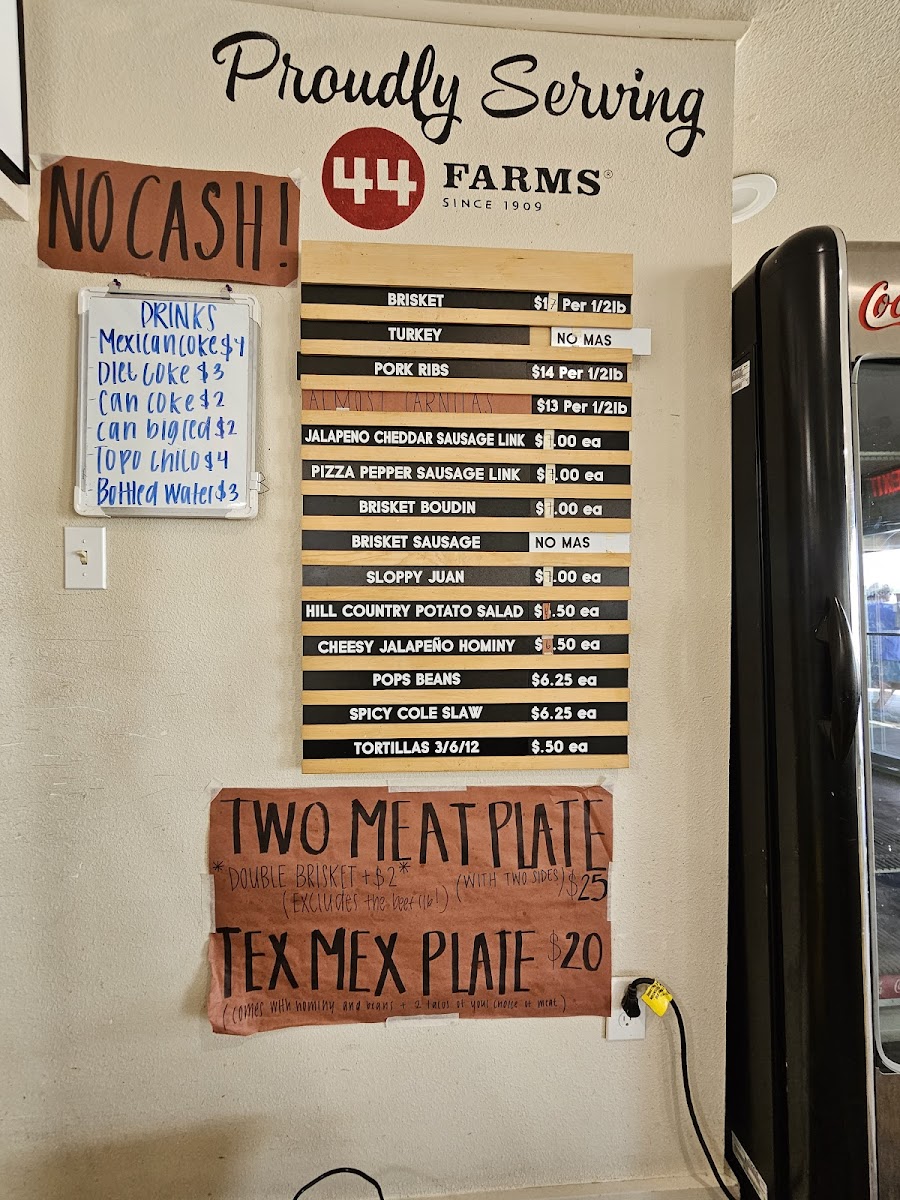 Proudly Serving
44 FARMS®
SINCE 1909
NO CASH!
DRINKS
Mexican coke $4
Diet Coke $3
Can Coke $2
can big red $2
Topo Chilo $4
Bottled Water $3
BRISKET $17 Per 1/2lb
TURKEY NO MAS
PORK RIBS $14 Per 1/2lb
ALMOST CARNITAS $13 Per 1/2lb
JALAPENO CHEDDAR SAUSAGE LINK .00 ea
PIZZA PEPPER SAUSAGE LINK .00 ea
BRISKET BOUDIN .00 ea
BRISKET SAUSAGE NO MAS
SLOPPY JUAN .00 ea
HILL COUNTRY POTATO SALAD .50 ea
CHEESY JALAPEÑO HOMINY .50 ea
POPS BEANS $6.25 ea
SPICY COLE SLAW $6.25 ea
TORTILLAS 3/6/12 $.50 ea
TWO MEAT PLATE
*DOUBLE BRISKET +$2* (WITH TWO SIDES) $25
(EXCLUDES the beef rib!)
TEX MEX PLATE $20
(comes with hominy and beans + 2 tacos of your choice of meat)